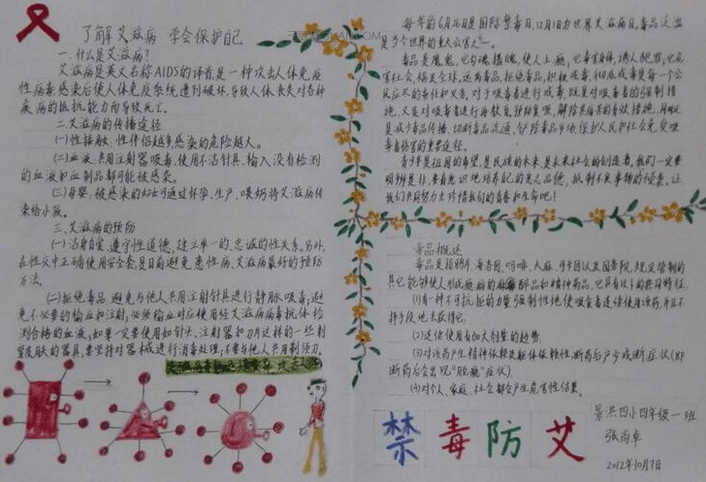 了解艾滋病 学会保护自己
一.什么是艾滋病?
艾滋病是英文名称AIDS的译音是一种攻击人体免疫
性病毒感染后使人体免疫系统遭到破坏,导致人体丧失对各种
疾病的抵抗能力而导致死亡。
二.艾滋病的传播途径
(一)性接触,性伴侣越多感染的危险越大。
(二)血液、共用注射器吸毒,使用不洁针具,输入没有检测
的血液和血制品都可能被感染。
(三)母婴,被感染的妇女可通过怀孕、生产、喂奶将艾滋病传
染给小孩。
三.艾滋病的预防
(一)洁身自爱,遵守性道德,建立单一的、忠诚的性关系。另外,
在性交中正确使用安全套,是目前避免患性病、艾滋病最好的预防
方法。
(二)拒绝毒品,避免与他人共用注射针具进行静脉吸毒;避
免不必要的输血和注射,必须输血时应使用经艾滋病病毒抗体检
测合格的血液;如果一定要使用如针头、注射器和刀片这样的一些刺
皮肤的器具,要坚持对器械进行消毒处理;不要与他人共用剃须刀。
每年的6月26日是国际禁毒日,12月1日为世界艾滋病日,毒品
是当今世界的重大公害之一。
毒品是魔鬼,它勾魂摄魄,使人上瘾;它毒害身体,诱人犯罪;它危
害社会,祸及全球,远离毒品,拒绝毒品,积极戒毒,彻底戒毒是每一个公
民应尽的责任和义务。对于吸毒者进行戒毒,既是对吸毒者的强制措
施,又是对吸毒者进行再教育
是减少毒品传播,切断毒品流通,铲除毒品市场,保护人民和社会免受吸
毒者伤害的重要途径。
青少年是祖国的希望,是民族的未来,是未来社会的创造者。我们一定要
明辨是非,要有意识地培养
我们共同努力去珍惜我们的青春和生命吧!
毒品概述
毒品是指鸦片、海洛因、吗啡、大麻、可卡因以及国务院规定管制的
其它能够使人形成瘾癖的麻醉药品和精神药品,它具有以下的共同特征:
(1)有一种不可抗拒的力量强制性地使吸食者连续使用该药,并且不
择手段地去获得它.
(2)连续使用有加大剂量的趋势.
(3)对该药产生精神依赖及躯体依赖性,断药后产生戒断症状(即
断药后会出现"脱瘾"症状)
(4)对个人、家庭、社会都会产生危害性结果。
禁毒防艾
景洪四小四年级一班
张尚卓
2012年10月7日